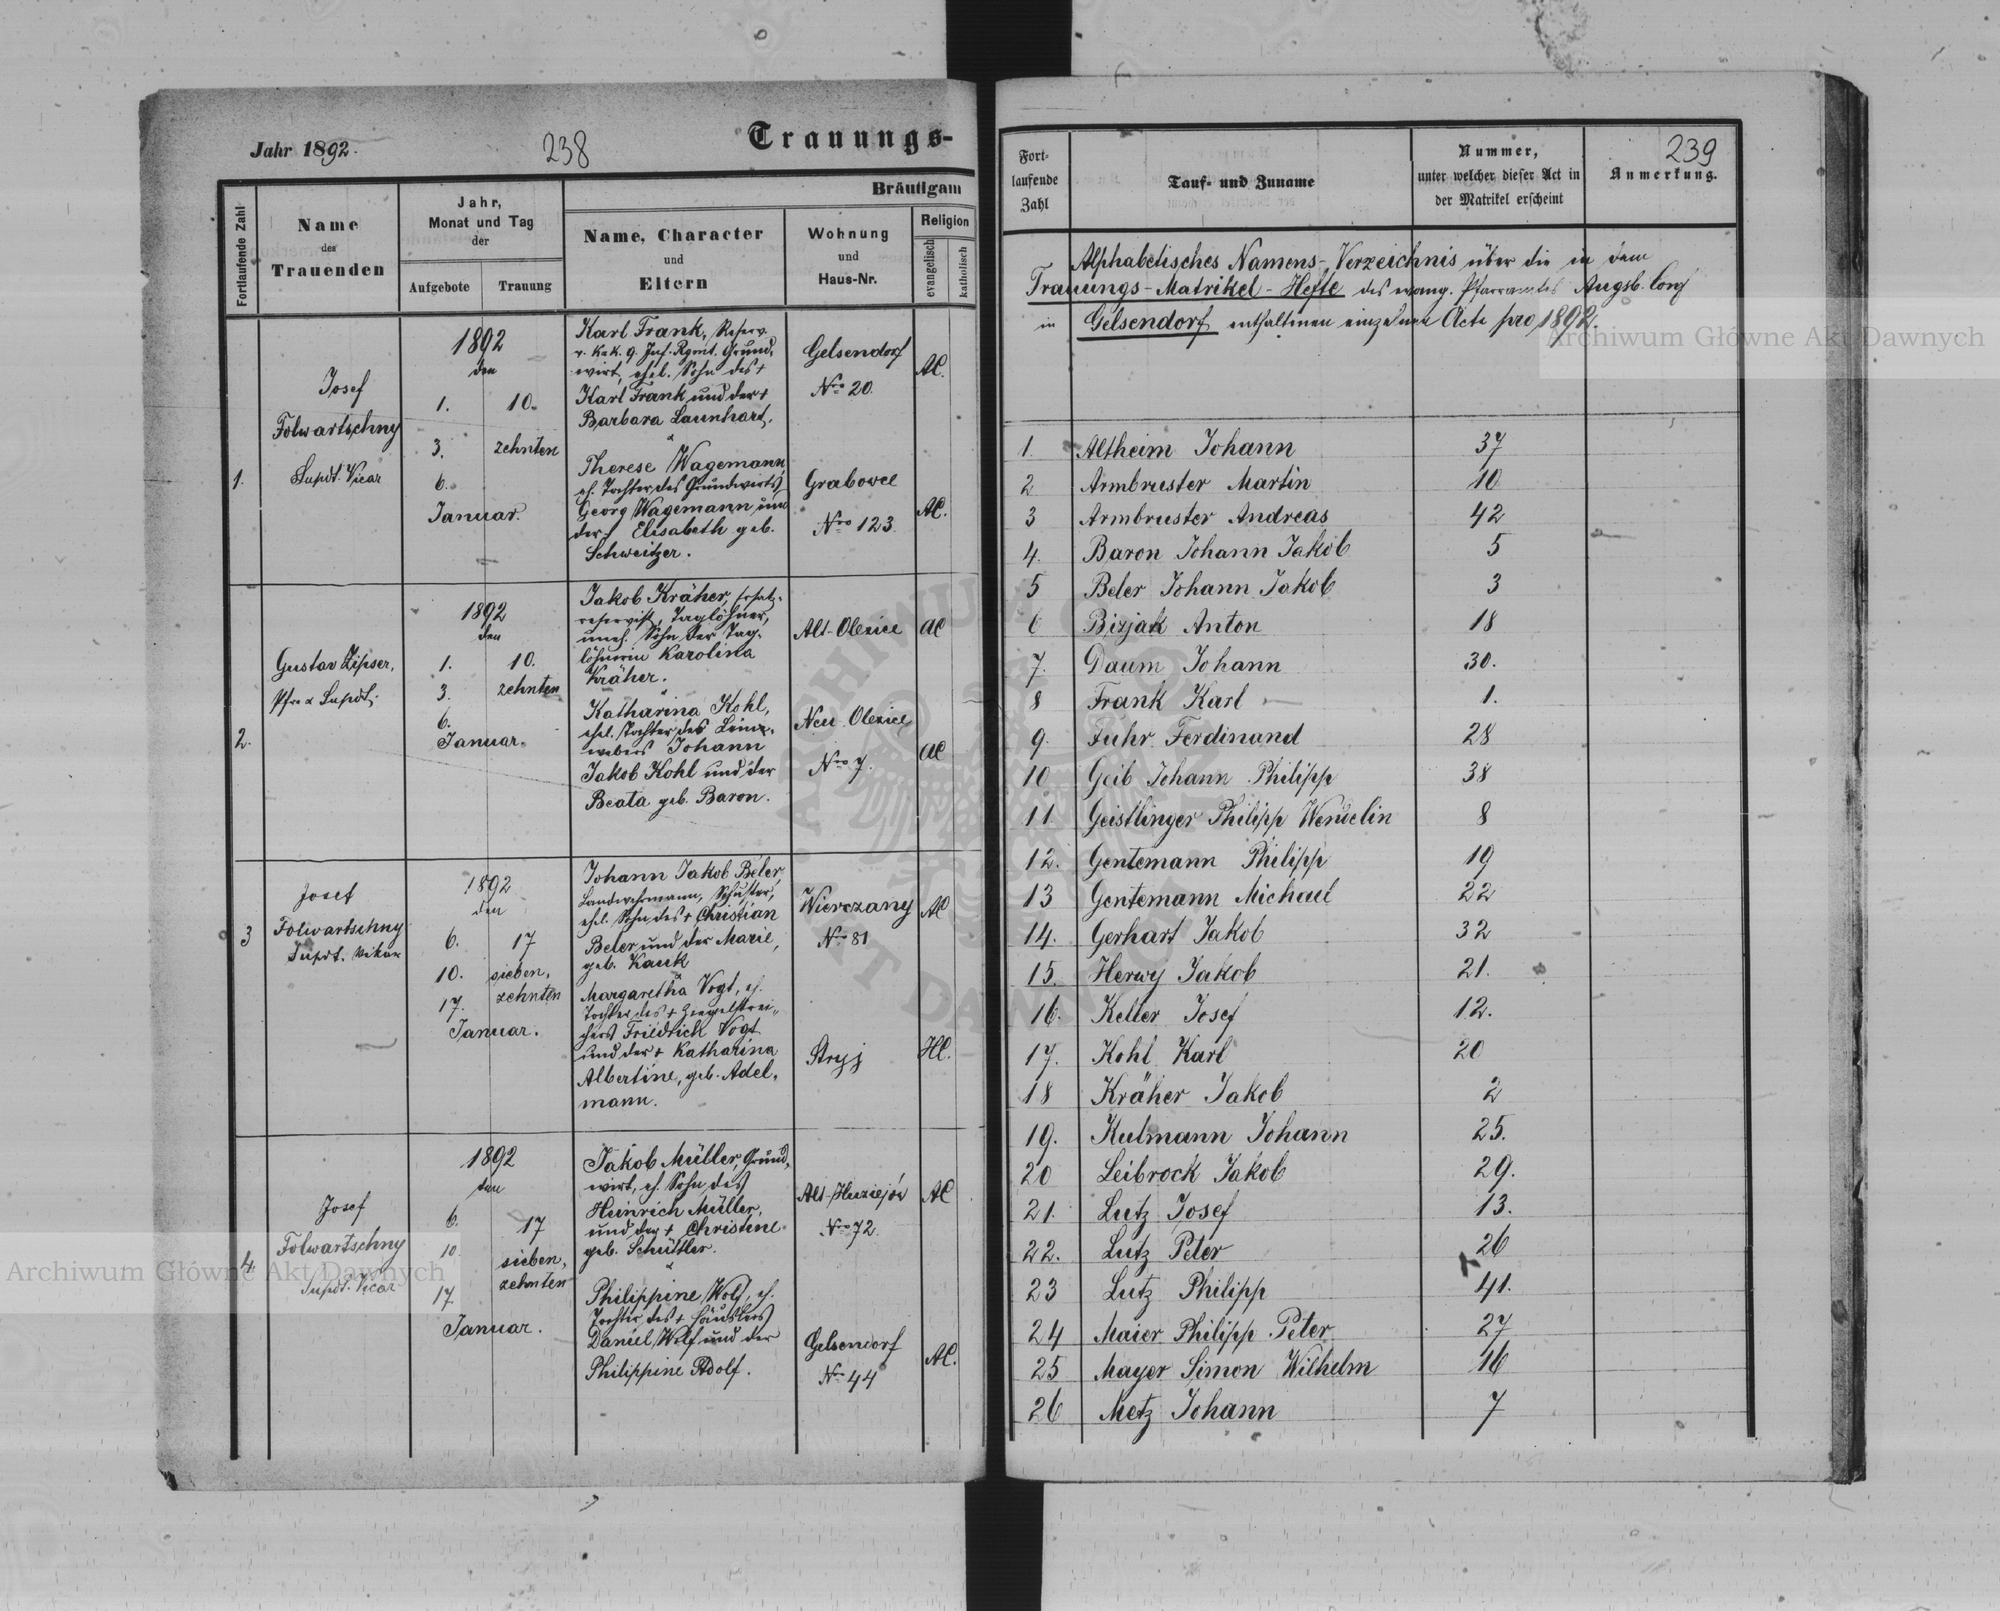 Jahr 1892.
238
Trauungs-
Fortlaufende Zahl
Name
des
Trauenden
Jahr,
Monat und Tag
der
Aufgebote
Trauung
Bräutigam
Name, Character
und
Eltern
Wohnung
und
Haus-Nr.
Religion
evangelisch
katholisch
1.
Josef
Folwartschny
Supdt. Vicar
1892
den
1. 10.
3. zehnten
6.
Januar.
Karl Frank, Reserv.
v. k.u.k. 9. Inf. Rgmt. Grund-
wirt, ehel. Sohn des +
Karl Frank und der +
Barbara Launhart.
Therese Wagemann,
eh. Tochter des Grundwirts
Georg Wagemann und
der + Elisabeth geb.
Schweitzer.
Gelsendorf
Nro 20.
Grabovce
Nro 123
AC.
AC.
2.
Gustav Zipser,
Pfr. & Supdt.
1892
den
1. 10.
3. zehnten
6.
Januar.
Jakob Kräher, Ersatz-
reservist, Taglöhner,
uneh. Sohn der Tag-
löhnerin Karolina
Kräher.
Katharina Kohl,
ehel. Tochter des Lein-
webers Johann
Jakob Kohl und der
Beata geb. Baron.
Alt-Olexice
Neu-Olexice
Nro 7.
AC
AC
3
Josef
Folwartschny
Supdt. Vikar
1892
den
6. 17
10. sieben-
17. zehnten
Januar.
Johann Jakob Beler,
Landwehrmann, Schuster,
ehel. Sohn des + Christian
Beler und der Marie,
geb. Kauk
Margaretha Vogt, eh.
Tochter des + Ziegelstrei-
chers Friedrich Vogt
und der + Katharina
Albertine, geb. Adel-
mann.
Wierczany
Nro 81
Stryj
AC
HC.
4.
Josef
Folwartschny
Supdt. Vicar
1892
den
6. 17
10. sieben-
17 zehnten
Januar.
Jakob Müller, Grund-
wirt, eh. Sohn des
Heinrich Müller,
und der + Christine
geb. Schüttler.
Philippine Wolf, eh.
Tochter des + Häuslers
Daniel Wolf und der
Philippine Adolf.
Alt-Huziejów
Nro 72.
Gelsendorf
Nro 44
AC
AC.
239
Fort-
laufende
Zahl
Tauf- und Zuname
Nummer,
unter welcher dieser Act in
der Matrikel erscheint
Anmerkung.
Alphabetisches Namens-Verzeichnis über die in dem
Trauungs-Matrikel-Hefte des evang. Pfarramtes Augsb. Conf
in Gelsendorf enthaltenen einzelnen Acte pro 1892.
1 Altheim Johann 37
2 Armbruster Martin 10
3 Armbruster Andreas 42
4. Baron Johann Jakob 5
5 Beler Johann Jakob 3
6 Bizjak Anton 18
7. Daum Johann 30.
8 Frank Karl 1.
9. Fuhr Ferdinand 28
10 Geib Johann Philipp 38
11 Geistlinger Philipp Wendelin 8
12. Gentemann Philipp 19
13 Gentemann Michael 22
14. Gerhart Jakob 32
15. Herwy Jakob 21.
16. Keller Josef 12.
17. Kohl Karl 20
18 Kräher Jakob 2
19. Kulmann Johann 25.
20 Leibrock Jakob 29.
21. Lutz Josef 13.
22. Lutz Peter 26
23 Lutz Philipp 41.
24 Maier Philipp Peter 27
25 Mayer Simon Wilhelm 16
26 Metz Johann 7
Archiwum Główne Akt Dawnych
Archiwum Główne Akt Dawnych